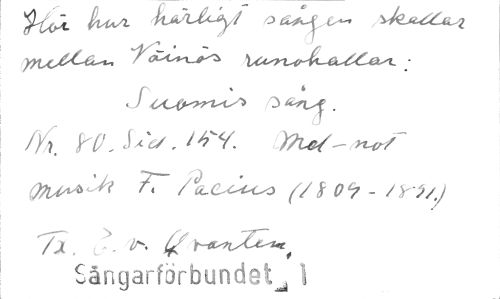 Hör hur härligt sången skallar
mellan Väinös runohallar:
Suomis sång.
Nr. 80. Sid. 154. Mel-not
musik F. Pacius (1809-1891.)
Tx. E. v. Qvanten.
Sångarförbundet 1